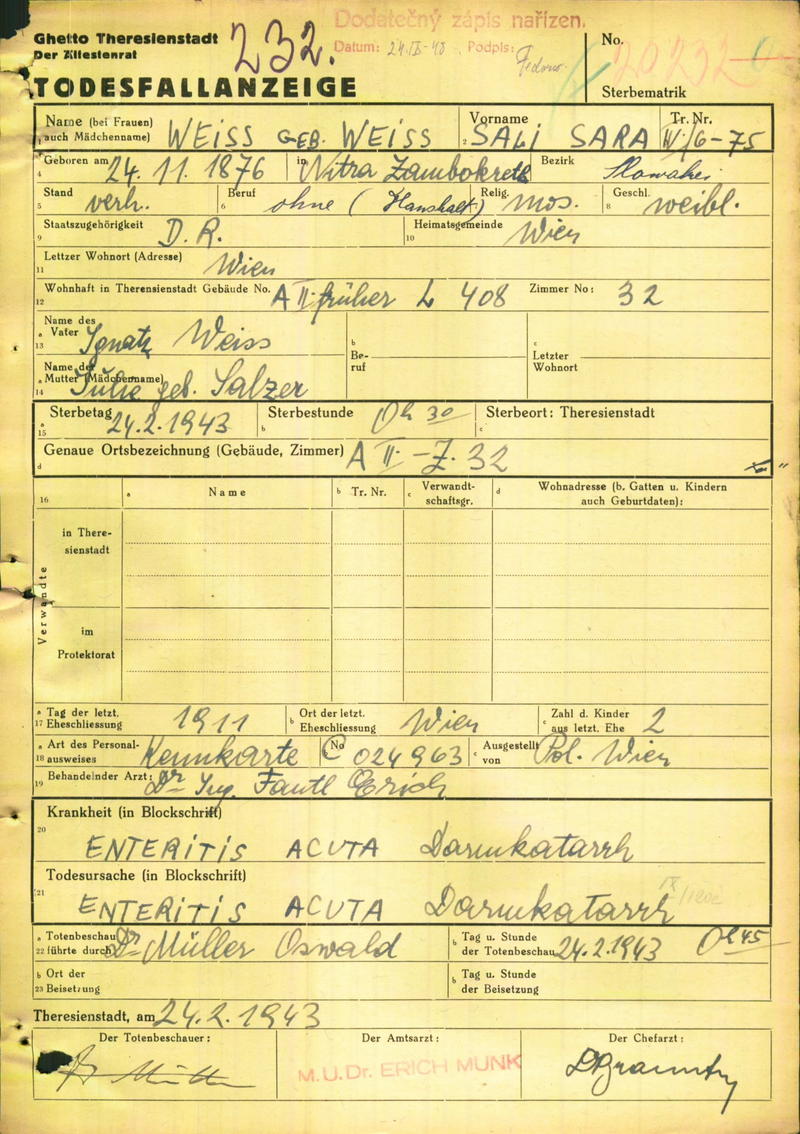 Ghetto Theresienstadt
Der Ältestenrat
232.
Dodatečný zápis nařízen.
Datum: Podpis:
TODESFALLANZEIGE
No.
Sterbematrik
Name (bei Frauen) auch Mädchenname) WEISS GEB. WEISS Vorname SALI SARA Tr. Nr. IV/6-75
1 2
Geboren am 24.11.1876 in Nitra Zambokreth Bezirk Slowakei
4
Stand verh. Beruf ohne (Haushalt) Relig. mos. Geschl. weibl.
5 6 8
Staatszugehörigkeit D.R. Heimatsgemeinde Wien
9 10
Lettzer Wohnort (Adresse) Wien
11
Wohnhaft in Theresienstadt Gebäude No. A II früher L 408 Zimmer No: 32
12
Name des
a Vater Ignatz Weiss b Be-ruf c Letzter Wohnort
13
Name der
a Mutter (Mädchenname) Julie geb. Salzer
14
Sterbetag 24.2.1943 Sterbestunde 0h 30 Sterbeort: Theresienstadt
a 15 b c
Genaue Ortsbezeichnung (Gebäude, Zimmer) A II - Z. 32
d
16 a Name b Tr. Nr. c Verwandt-schaftsgr. d Wohnadresse (b. Gatten u. Kindern auch Geburtdaten):
Verwandte
in There-
sienstadt
im
Protektorat
a Tag der letzt. 17 Eheschliessung 1911 b Ort der letzt. Eheschliessung Wien c Zahl d. Kinder aus letzt. Ehe 2
a Art des Personal- 18 ausweises Kennkarte b No C 024963 c Ausgestellt von Pol. Wien
19 Behandelnder Arzt: Dr Ing. Fantl Erich
Krankheit (in Blockschrift)
20
ENTERITIS ACUTA Darmkatarrh
Todesursache (in Blockschrift)
21
ENTERITIS ACUTA Darmkatarrh
a Totenbeschau 22 führte durch Dr Müller Oswald b Tag u. Stunde der Totenbeschau 24.2.1943 0h45
b Ort der 23 Beisetzung b Tag u. Stunde der Beisetzung
Theresienstadt, am 24.2.1943
Der Totenbeschauer: Der Amtsarzt: Der Chefarzt:
M.U.Dr. ERICH MUNK